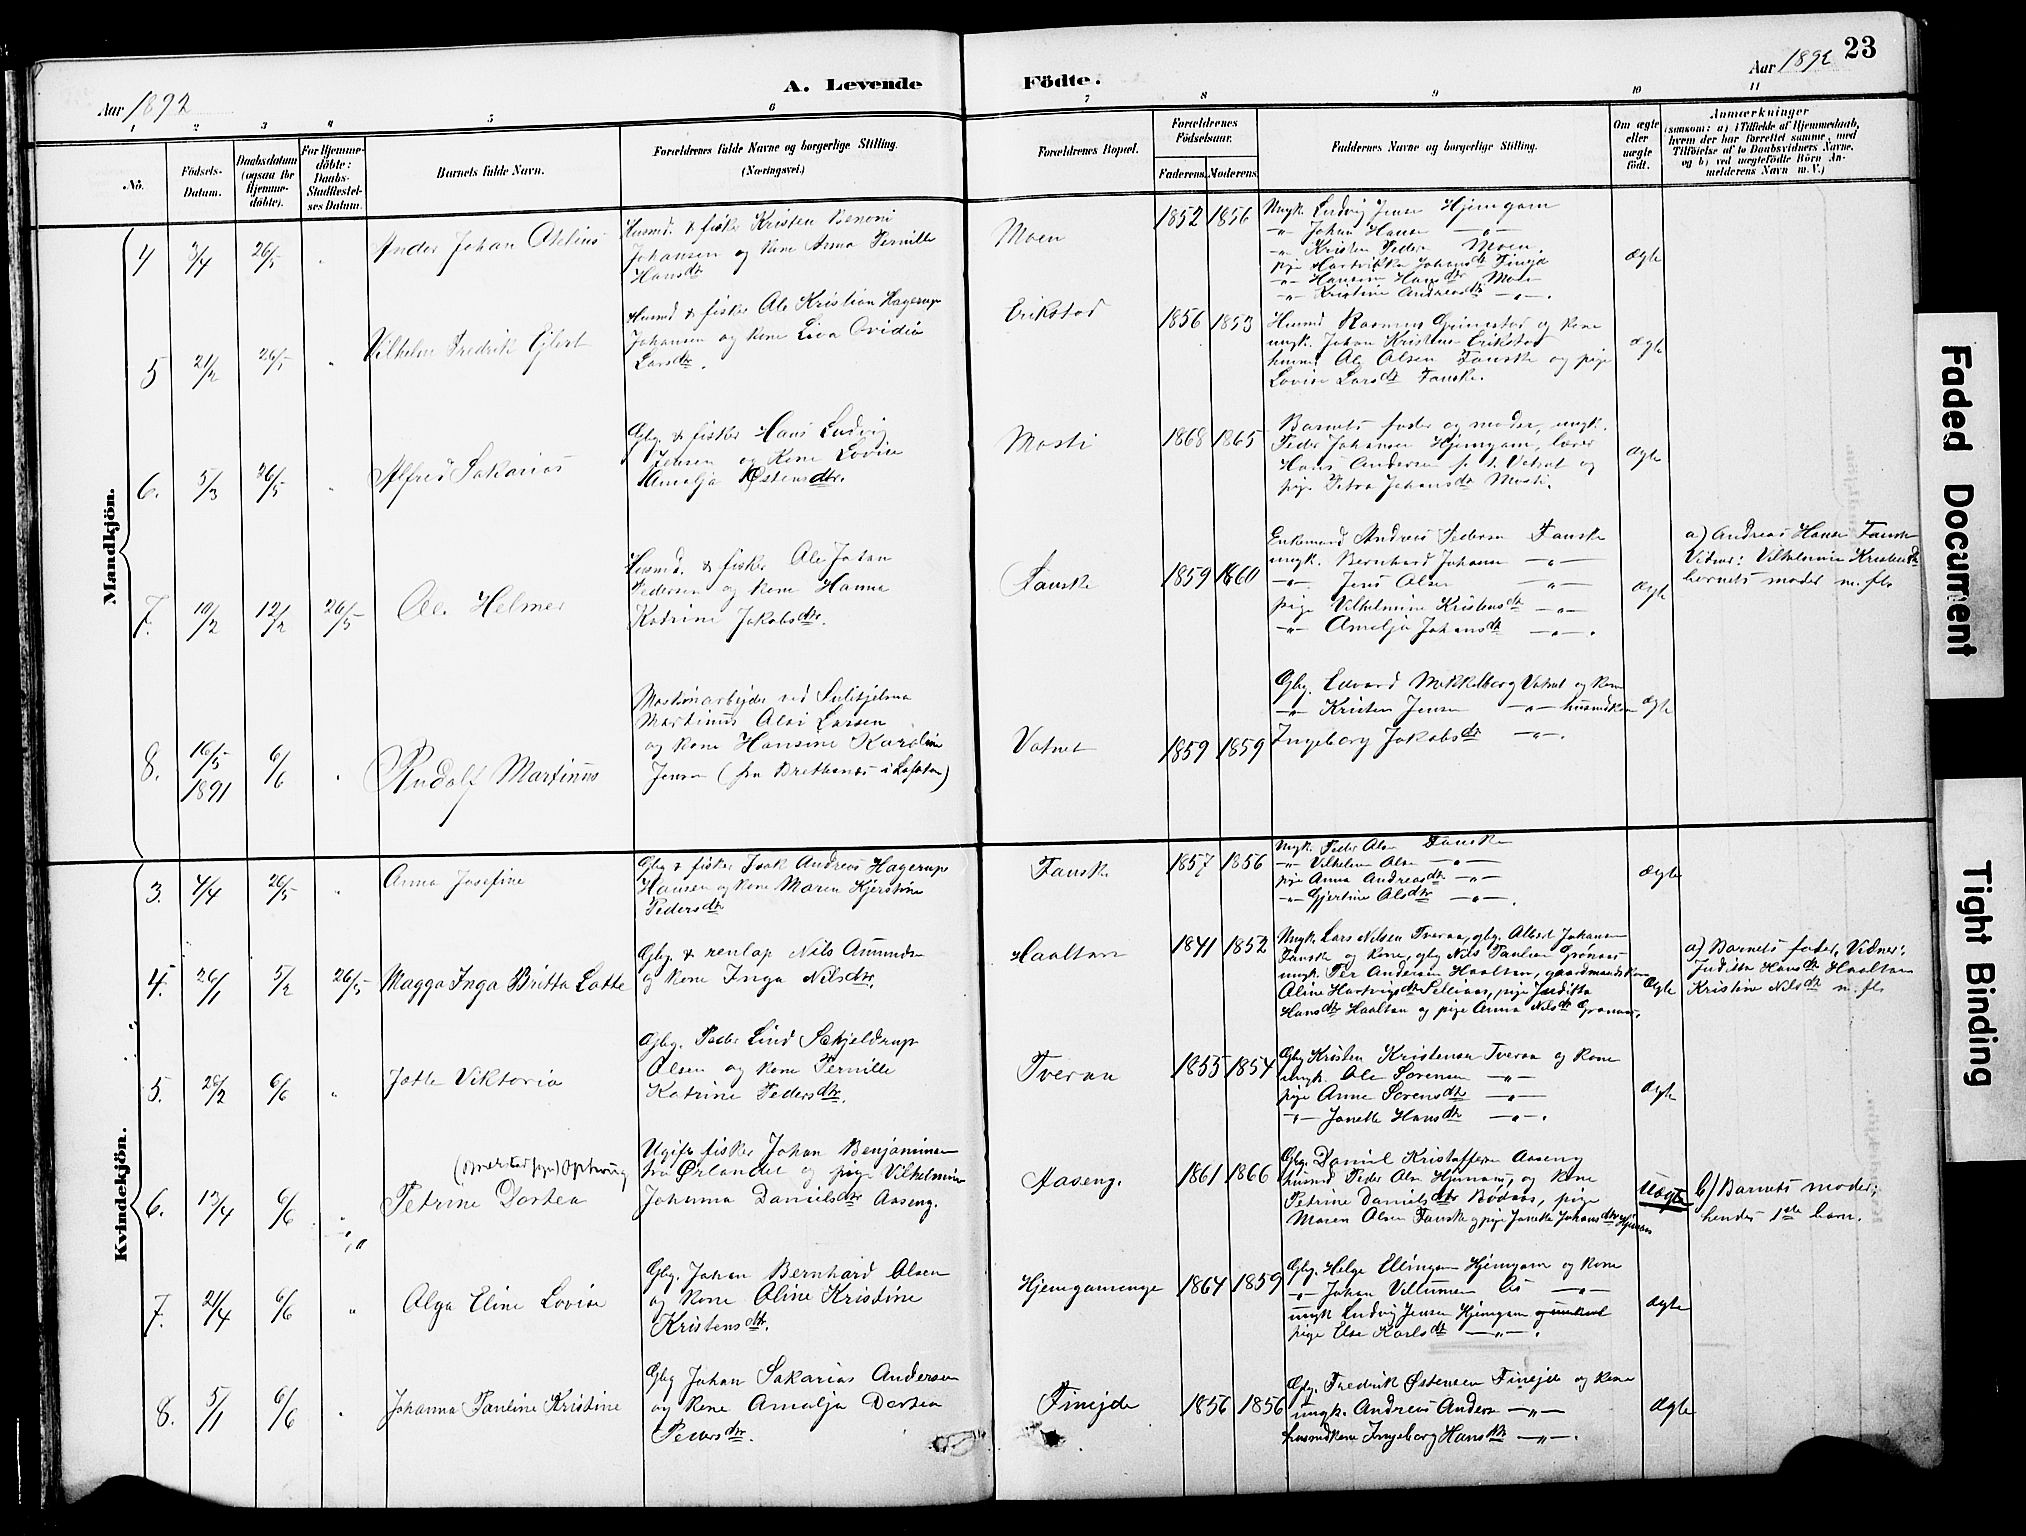 23
A. Levende Födte.
Aar 1892
Aar 1892
1 2 3 4 5 6 7 8 9 10 11
No.
Födsels-
Datum.
Daabsdatum
(ogsaa for
Hjemme-
döbte).
For Hjemme-
döbte:
Daabs-
Stadfæstel-
ses Datum.
Barnets fulde Navn.
Forældrenes fulde Navne og borgerlige Stilling.
(Næringsvei.)
Forældrenes Bopæl.
Forældrenes
Födselsaar.
Faderens. Moderens.
Faddernes Navne og borgerlige Stilling.
Om ægte
eller
uægte
født.
Anmærkninger
(saasom: a) i Tilfælde af Hjemmedaab,
hvem der har forrettet samme, med
Tilföielse af to Daabsvidners Navne,
og b) ved uægtefödte Börn An-
melderens Navn m. V.)
Mandkjön.
4 3/4 26/5 " Ander Johan Otelius
Husmd. & fisker Kristen Benoni
Johansen og kone Anna Pernille
Hansdtr
Moen 1852 1856
Ungk. Ludvig Jensen Hjemgam
-"- Johan Hansen -"-
-"- Kristen Peders. Moen.
pige Hartvikka Johansdtr Finejd
-"- Hansine Hansdtr Moen
-"- Kristine Andreasdtr -"-.
ægte
5 21/2 26/5 " Vilhelm Fredrik Ejlert
Husmd & fisker Ole Kristian Hagerup
Johansen og kone Liva Ovidia
Larsdtr.
Erikstad 1856 1853
Husmd Rasmus Grimstad og kone
ungk. Johan Kristens. Erikstad
husmd Ole Olsen Fauske og pige
Lovise Larsdtr Fauske.
ægte
6. 5/3 26/5 " Alfred Sakarias
Gbg. & fisker Hans Ludvig
Jensen og kone Lovise
Amalja Østensdtr.
Mosti 1868 1865
Barnets fader og moder, ungk.
Peder Johansen Hjemgam, lærer
Hans Andersen p. t. Vatnet og
pige Petra Johansdtr Mosti.
ægte
7. 10/2 12/2 26/5 Ole Helmer
Husmd. & fisker Ole Johan
Pedersen og kone Hanna
Katrine Jakobsdtr.
Fauske 1859 1860
Enkemand Andreas Pedersen Fauske
ungk. Bernhard Johansen -"-
-"- Jens Olsen -"-
pige Vilhelmine Kristensdtr -"-
-"- Amalja Johansdtr -"-.
ægte
a) Andreas Hansen Fauske
Vidner: Vilhelmine Kristensdtr
barnets moder m. fl.
8. 16/5 1891 6/6 " Rudolf Martinus
Maskinarbejder ved Sulitjelma
Martinus Olai Larsen
og kone Hansine Karoline
Jensen (fra Brettesnes i Lofoten)
Vatnet 1859 1859
Gbg. Edvard Mikkelborg Vatnet og kone
-"- Kristen Jensen -"- husmdkone
Ingeborg Jakobsdtr -"-.
ægte
Kvindekjön.
3. 4/4 26/5 " Anna Josefine
Gbg & fisker Isak Andreas Hagerup
Hansen og kone Maren Kjerstine
Pedersdtr
Fauske 1857 1856
Ungk. Peder Olsen Fauske
-"- Vilhelm Olsen -"-
pige Anna Andreasdtr -"-
-"- Gjertine Olsdtr -"-.
ægte
4. 26/1 5/2 26/5 Magga Inga Britta Lotte
Gbg. & renlap Nils Amundsen
og kone Inga Nilsdtr.
Haaltan 1841 1852
Ungk. Lars Nilsen Tveraa, gbg. Albert Johansen
Fauske og kone, gbg Nils Paulsen Grønaas
ungk. Per Andersen Haaltan, gaardmandskone
Aline Hartvigsdtr, pige Juditta
Hansdtr Haaltan og pige Anna Nilsdtr Grønaas.
ægte
a) Barnets fader, Vidner:
Juditta Hansdtr Haaltan
Kristine Nilsdtr m. fl.
5. 26/2 6/6 " Jatte Viktoria
Gbg. Peder Lind Schjeldrup
Olsen og kone Pernille
Katrine Pedersdtr.
Tveraa 1855 1854
Gbg Kristen Kristensen Tveraa og kone
ungk. Ole Sørensen -"-
pige Anne Sørensdtr -"-
-"- Janette Hansdtr -"-.
ægte
6. 12/4 6/6 " Petrine Dortea
Ugift fisker Johan Benjaminsen
fra Ørlandet og pige Vilhelmine
Johanna Danielsdtr Aaseng.
Aaseng. 1861 1866
Gbg. Daniel Kristoffersen Aaseng
husmd Peder Olsen, og kone
Petrine Danielsdtr Bodaas, pige
Maren Olsen Fauske og pige Janette Johansdtr
Uægte
b) Barnets moder;
hendes 1ste barn.
7. 21/4 6/6 " Olga Eline Lovise
Gbg. Johan Bernhard Olsen
og kone Oline Kristine
Kristensdtr.
Hjemgamenge 1864 1859
Gbg. Helge Ellingsen Hjemgam og kone
-"- Johan Villumsen Lis -"-
ungk Ludvig Jensen Hjemgam
pige Else Karlsdtr -"-.
ægte
8. 5/1 6/6 " Johanna Pauline Kristine
Gbg Johan Sakarias Andersen
og kone Amalja Dortea
Pedersdtr.
Finejde 1856 1856
Gbg. Fredrik Østensen Finejde og kone
ungk. Andreas Anders. -"-
husmdkone Ingeborg Hansdtr -"-.
ægte
Faded Document
Tight Binding